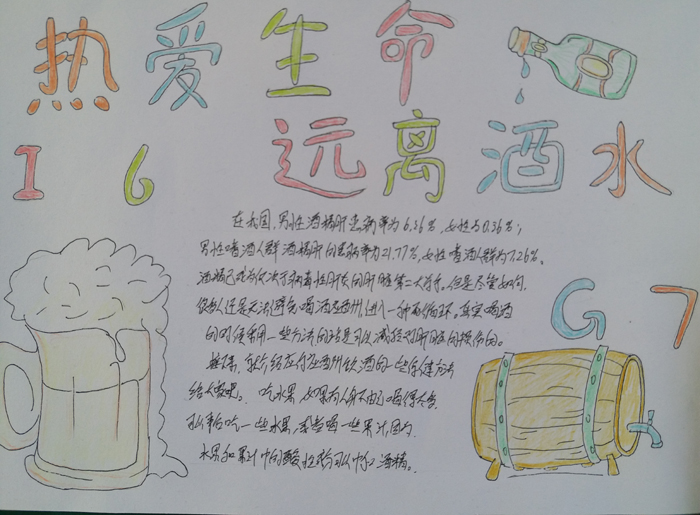 热爱生命
远离酒水
I 6
在我国,男性酒精肝患病率为6.36%,女性为0.36%;
男性嗜酒人群酒精肝的患病率为21.77%,女性嗜酒人群为7.26%。
酒精已成为仅次于病毒性肝炎的肝脏第二大杀手。但是尽管如何,
很多人还是无法避免喝酒应酬,进入一种恶循环。其实喝酒
的时候常用一些方法的话是可以减轻对肝脏的损伤的。
G 7
接下来,就介绍应付应酬饮酒的一些保健方法
给大家吧。 吃水果 如果为人身不由己喝得太多
可以事后吃一些水果,或者喝一些果汁,因为
水果和果汁中的酸性成份可以中和酒精。